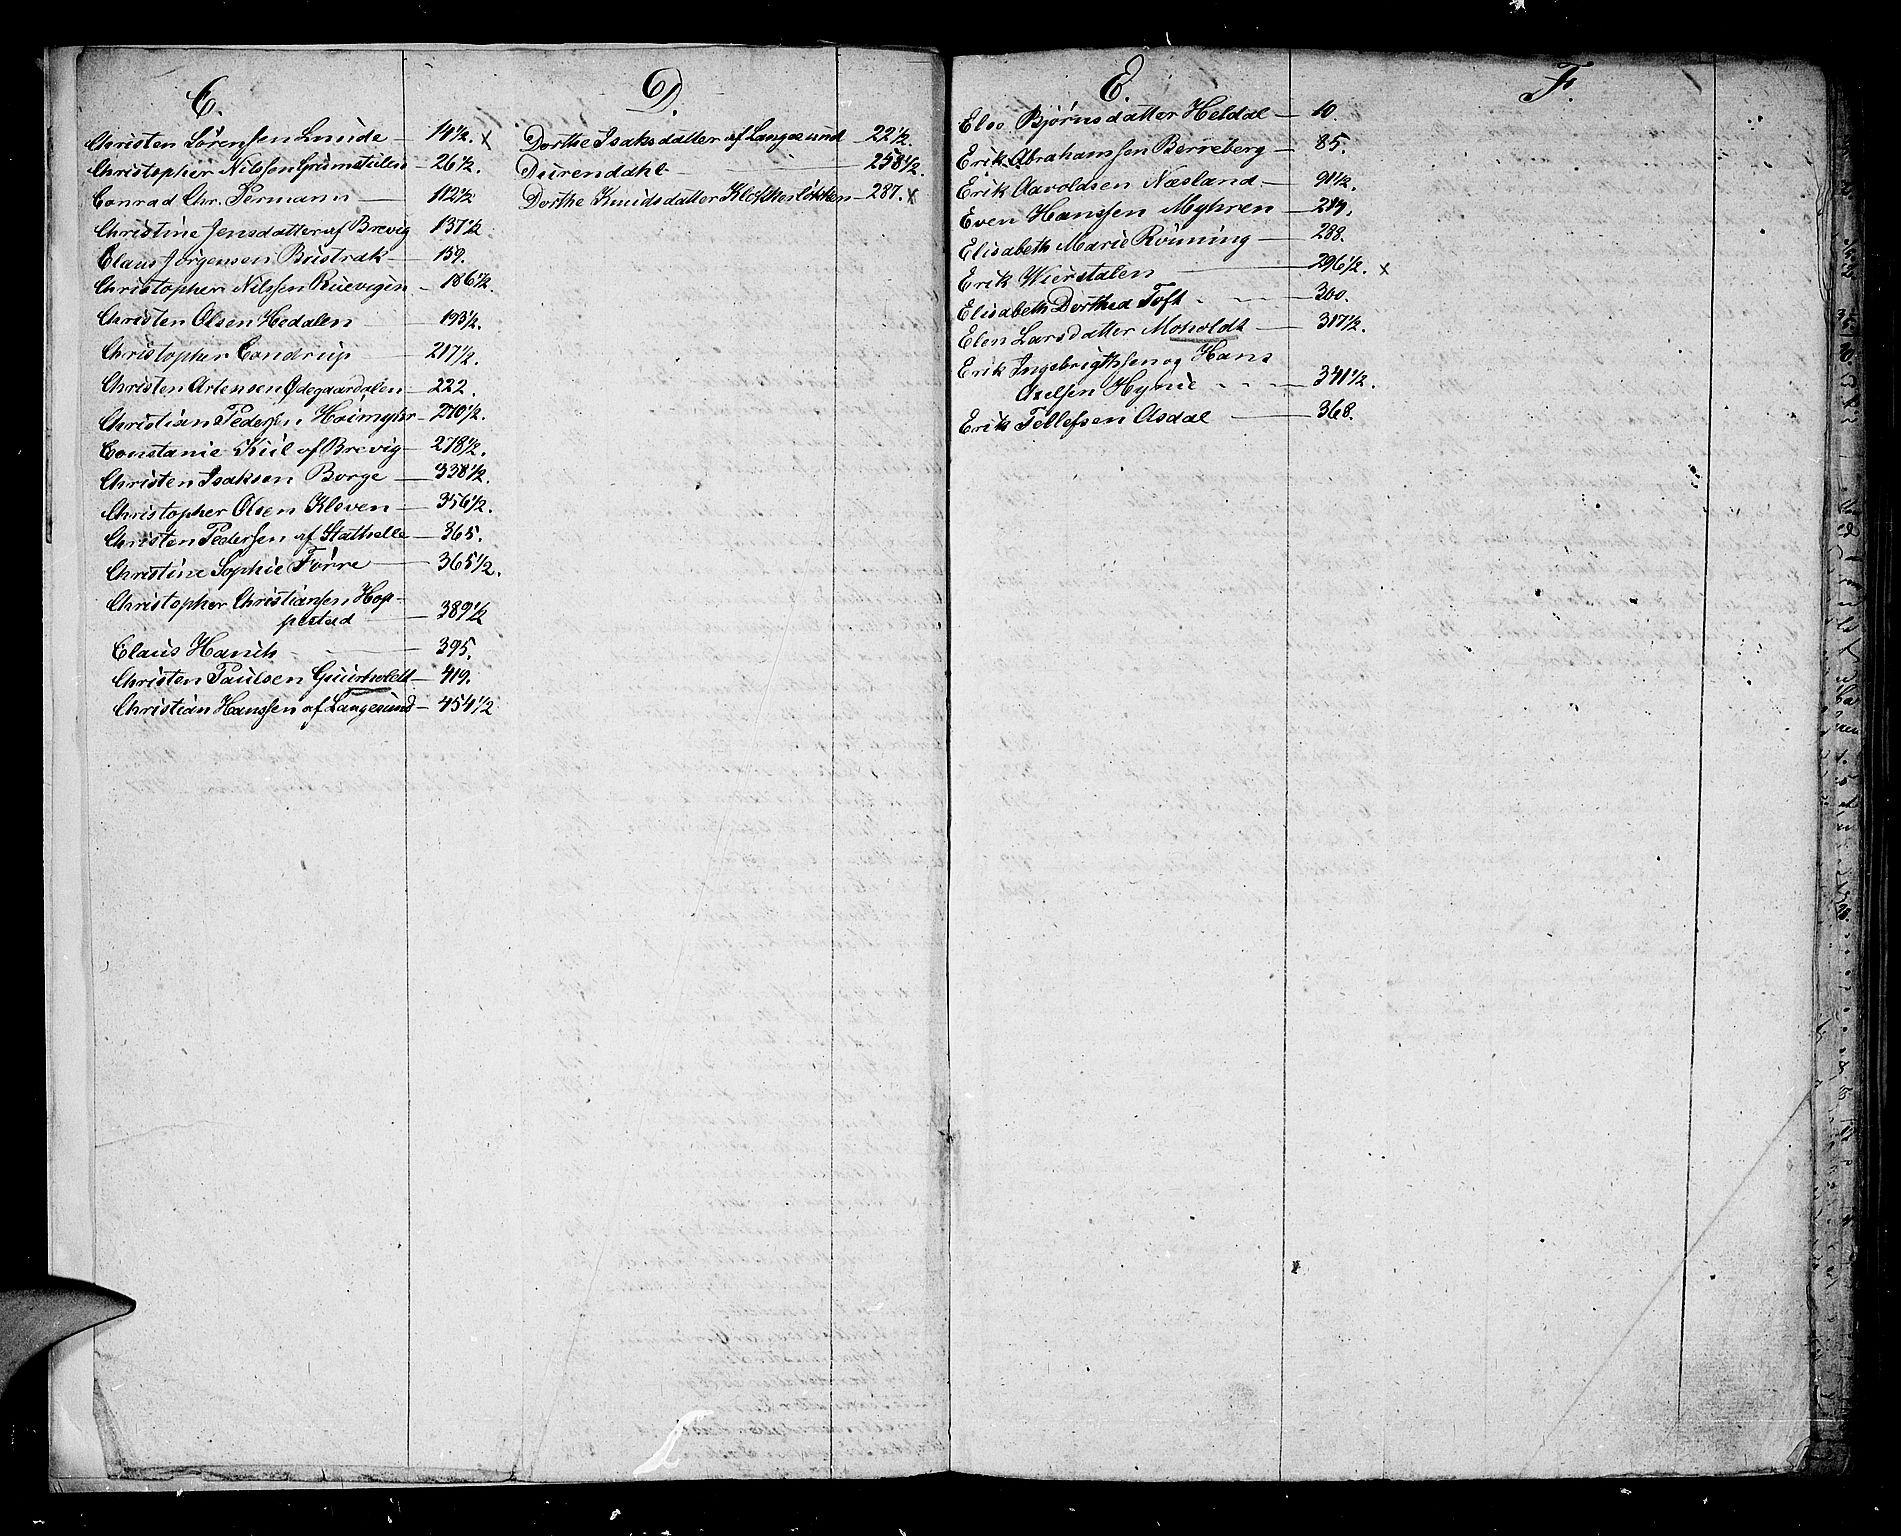 C.
Christen Sørensen Lunde — 14½. x
Christopher Nilssen Grimstulen 26½.
Conrad Chr. Permann — 112½
Christine Jensdatter af Brevig 137½
Claus Jörgensen Bustrak — 159.
Christopher Nilssen Ruevigen — 186½.
Christen Olsen Hedalen — 193½.
Christopher Coudrup — 217½.
Christen Artensen Ødegaardalen — 222.
Christian Pedersen Haimyhr — 270½.
Constanie Kiil af Brevig — 278½.
Christen Isaksen Borge — 338½.
Christopher Olsen Kleven — 356½
Christen Pedersen af Stathelle — 365.
Christine Sophie Förre — 365½.
Christopher Christiansen Hop-
pestad — 389½
Claus Hanck — 395.
Christen Paulsen Guurholdt — 419.
Christian Hanssen af Langesund — 454½
D.
Dorthe Isaksdatter af Langesund 22½.
Duurendahl — 258½.
Dorthe Knudsdatter Klokkerløkken — 287. x
E.
Elso Bjørnsdatter Heldal — 10.
Erik Abrahamssen Berreberg — 85.
Erik Aavoldsen Næsland — 91½.
Even Hanssen Myhren — 219.
Elisabeth Marie Rönning — 288.
Erik Wierstalen — 296½. x
Elisabeth Dorthea Toft — 300.
Elen Larsdatter Moholdt — 317½.
Erik Ingebrigtssen og Hans
Axelsen Hynie — 341½.
Erik Tellefsen Asdal — 368.
F.